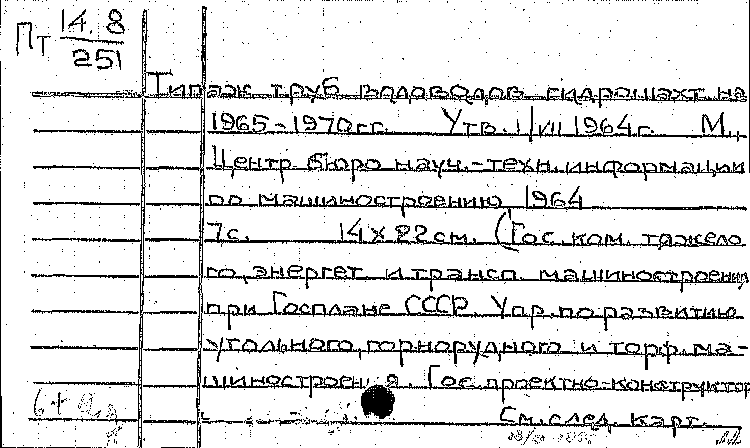 Пт 14.8
251
Типаж труб водоводов гидрошахт на
1965-1970гг. Утв. 1/VII 1964г. М.,
Центр. бюро науч.-техн. информации
по машиностроению, 1964
7с. 14 x 22 см. (Гос. ком. тяжело
го, энергет. и трансп. машиностроения
при Госплане СССР. Упр. по развитию
угольного, горнорудного и торф. ма-
шиностроения. Гос. проектно-конструктор
6+
См. след. карт.